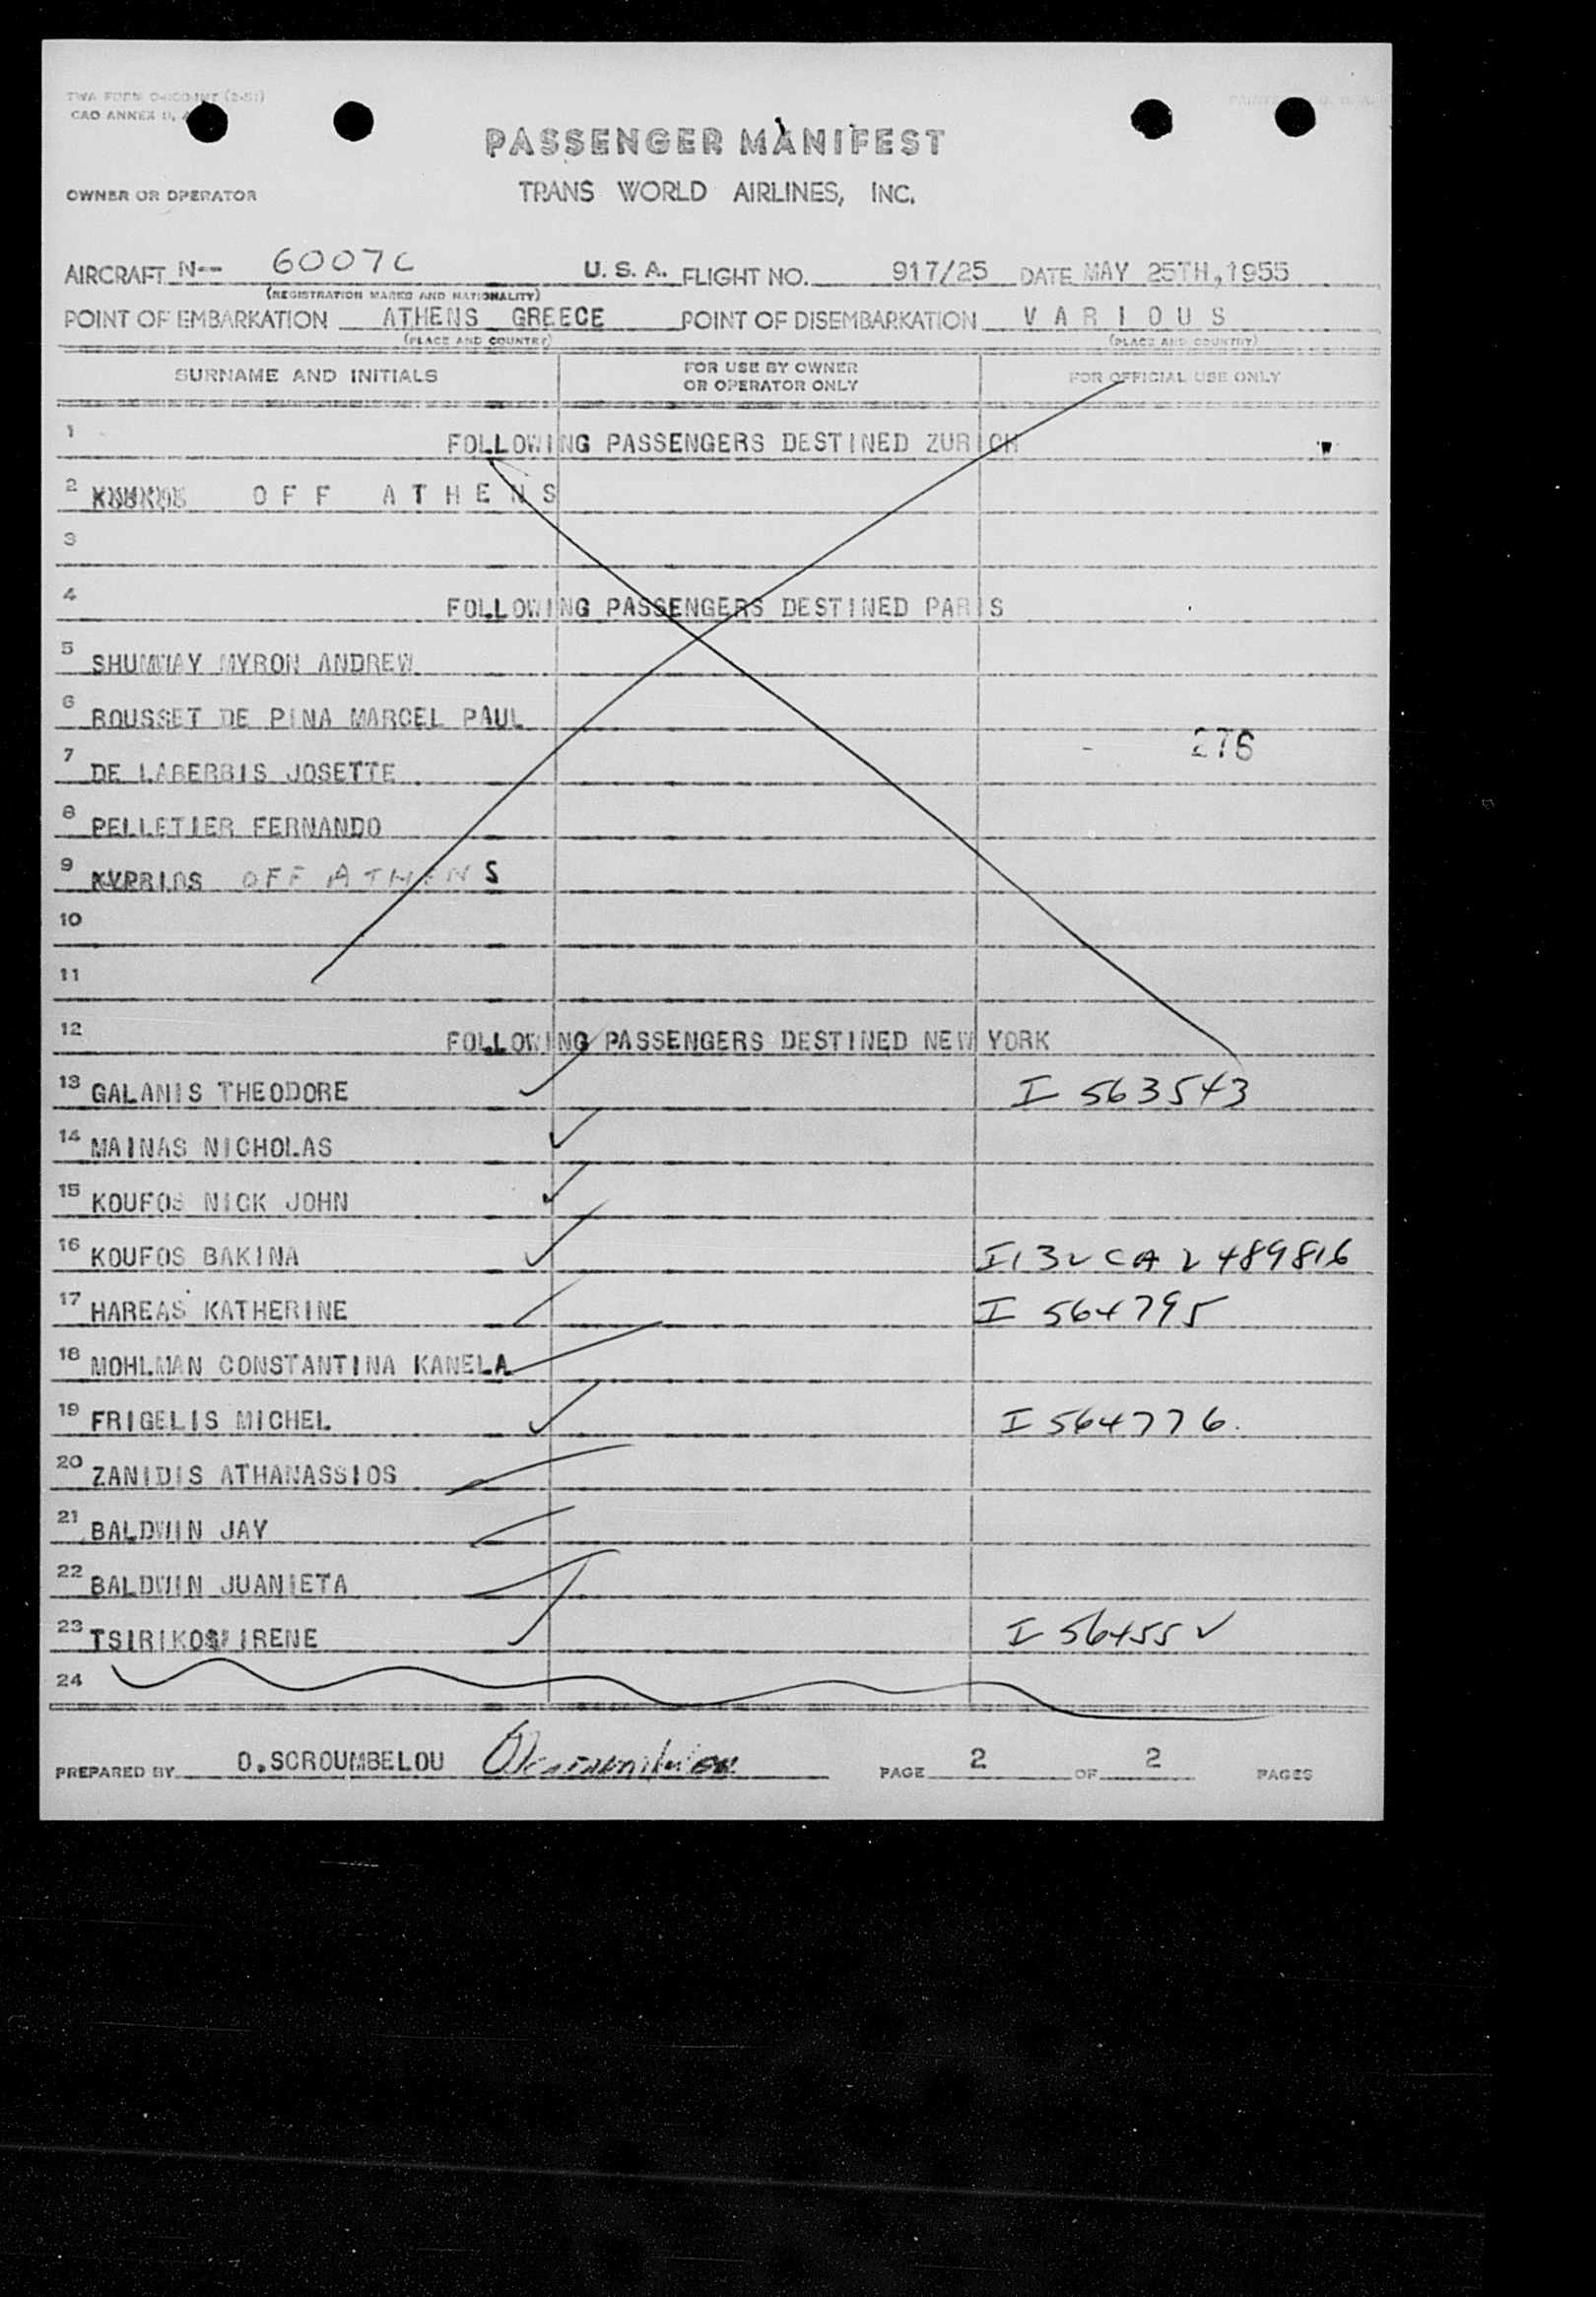 TWA FORM
CAO ANNEX
PASSENGER MANIFEST
OWNER OR OPERATOR TRANS WORLD AIRLINES, INC.
AIRCRAFT N-- 6007C U. S. A. FLIGHT NO. 917/25 DATE MAY 25TH, 1955
(REGISTRATION MARKS AND NATIONALITY)
POINT OF EMBARKATION ATHENS GREECE POINT OF DISEMBARKATION V A R I O U S
(PLACE AND COUNTRY) (PLACE AND COUNTRY)
SURNAME AND INITIALS FOR USE BY OWNER OR OPERATOR ONLY FOR OFFICIAL USE ONLY
1 FOLLOWING PASSENGERS DESTINED ZURICH
2 O F F A T H E N S
3
4 FOLLOWING PASSENGERS DESTINED PARIS
5 SHUMWAY MYRON ANDREW
6 ROUSSET DE PINA MARCEL PAUL
276
7 DE LABERBIS JOSETTE
8 PELLETIER FERNANDO
9 KYPRIOS OFF ATHENS
10
11
12 FOLLOWING PASSENGERS DESTINED NEW YORK
13 GALANIS THEODORE I 563543
14 MAINAS NICHOLAS
15 KOUFOS NICK JOHN
16 KOUFOS BAKINA I 132 CA 2489816
17 HAREAS KATHERINE I 564795
18 MOHLMAN CONSTANTINA KANELA
19 FRIGELIS MICHEL I 564776.
20 ZANIDIS ATHANASSIOS
21 BALDWIN JAY
22 BALDWIN JUANIETA
23 TSIRIKOS IRENE I 564552
24
PREPARED BY O.SCROUMBELOU PAGE 2 OF 2 PAGES